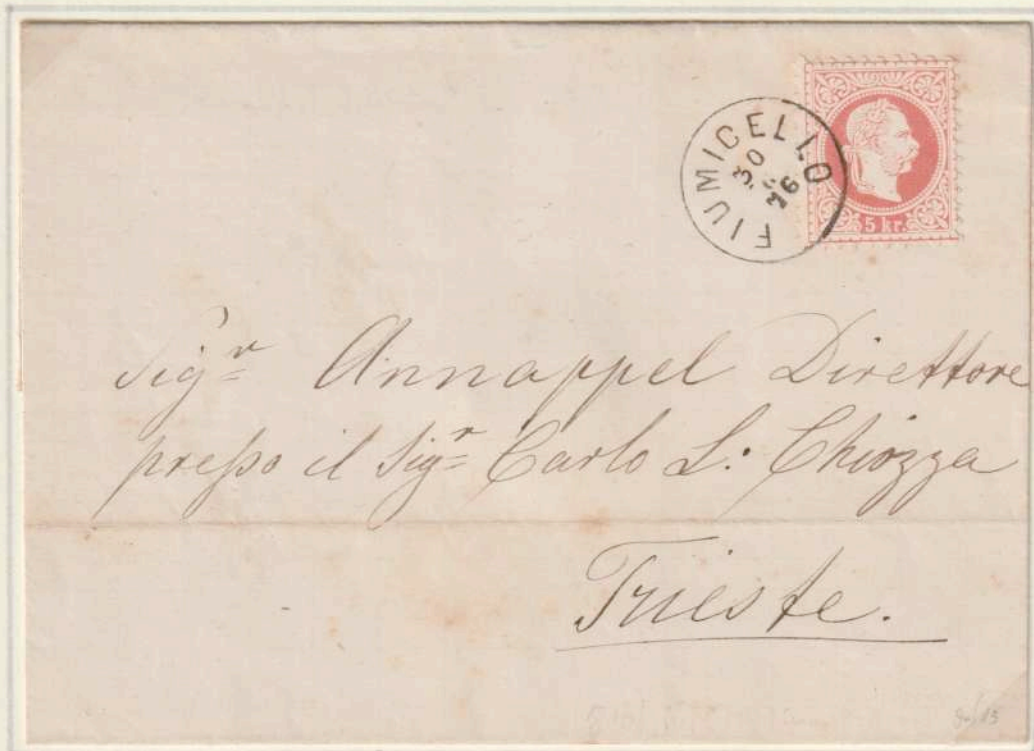 FIUMICELLO
30
76
5 kr.
Sigr Annappel Direttore
presso il Sigr Carlo L. Chiozza
Trieste.